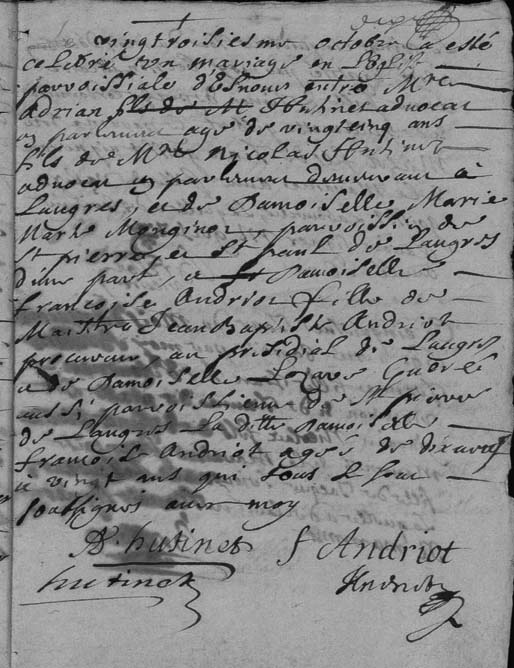 vingtroisiesme octobre a esté
celebré un mariage en l'eglise
parroissiale d'Esnoms entre Mre
Adrian fils de M Hutinet advocat
en parlement agé de vingtcinq ans
fils de Mre Nicolas Hutinet
advocat en parlement demeurant à
Langres, et de Damoiselle Marie
Marthe Monginot, parroissien de
St pierre et St paul de Langres
d'une part, et Damoiselle
francoise Andriot fille de
Maistre Jean Baptiste Andriot
procureur au presidial de Langres
et de Damoiselle Lazare
aussi parroissienne de St pierre
de Langres la ditte Damoiselle
francoise Andriot agée de dixneuf
à vingt ans qui tous se sont
soubsignés avec moy
A hutinet f Andriot
hutinet Andriot